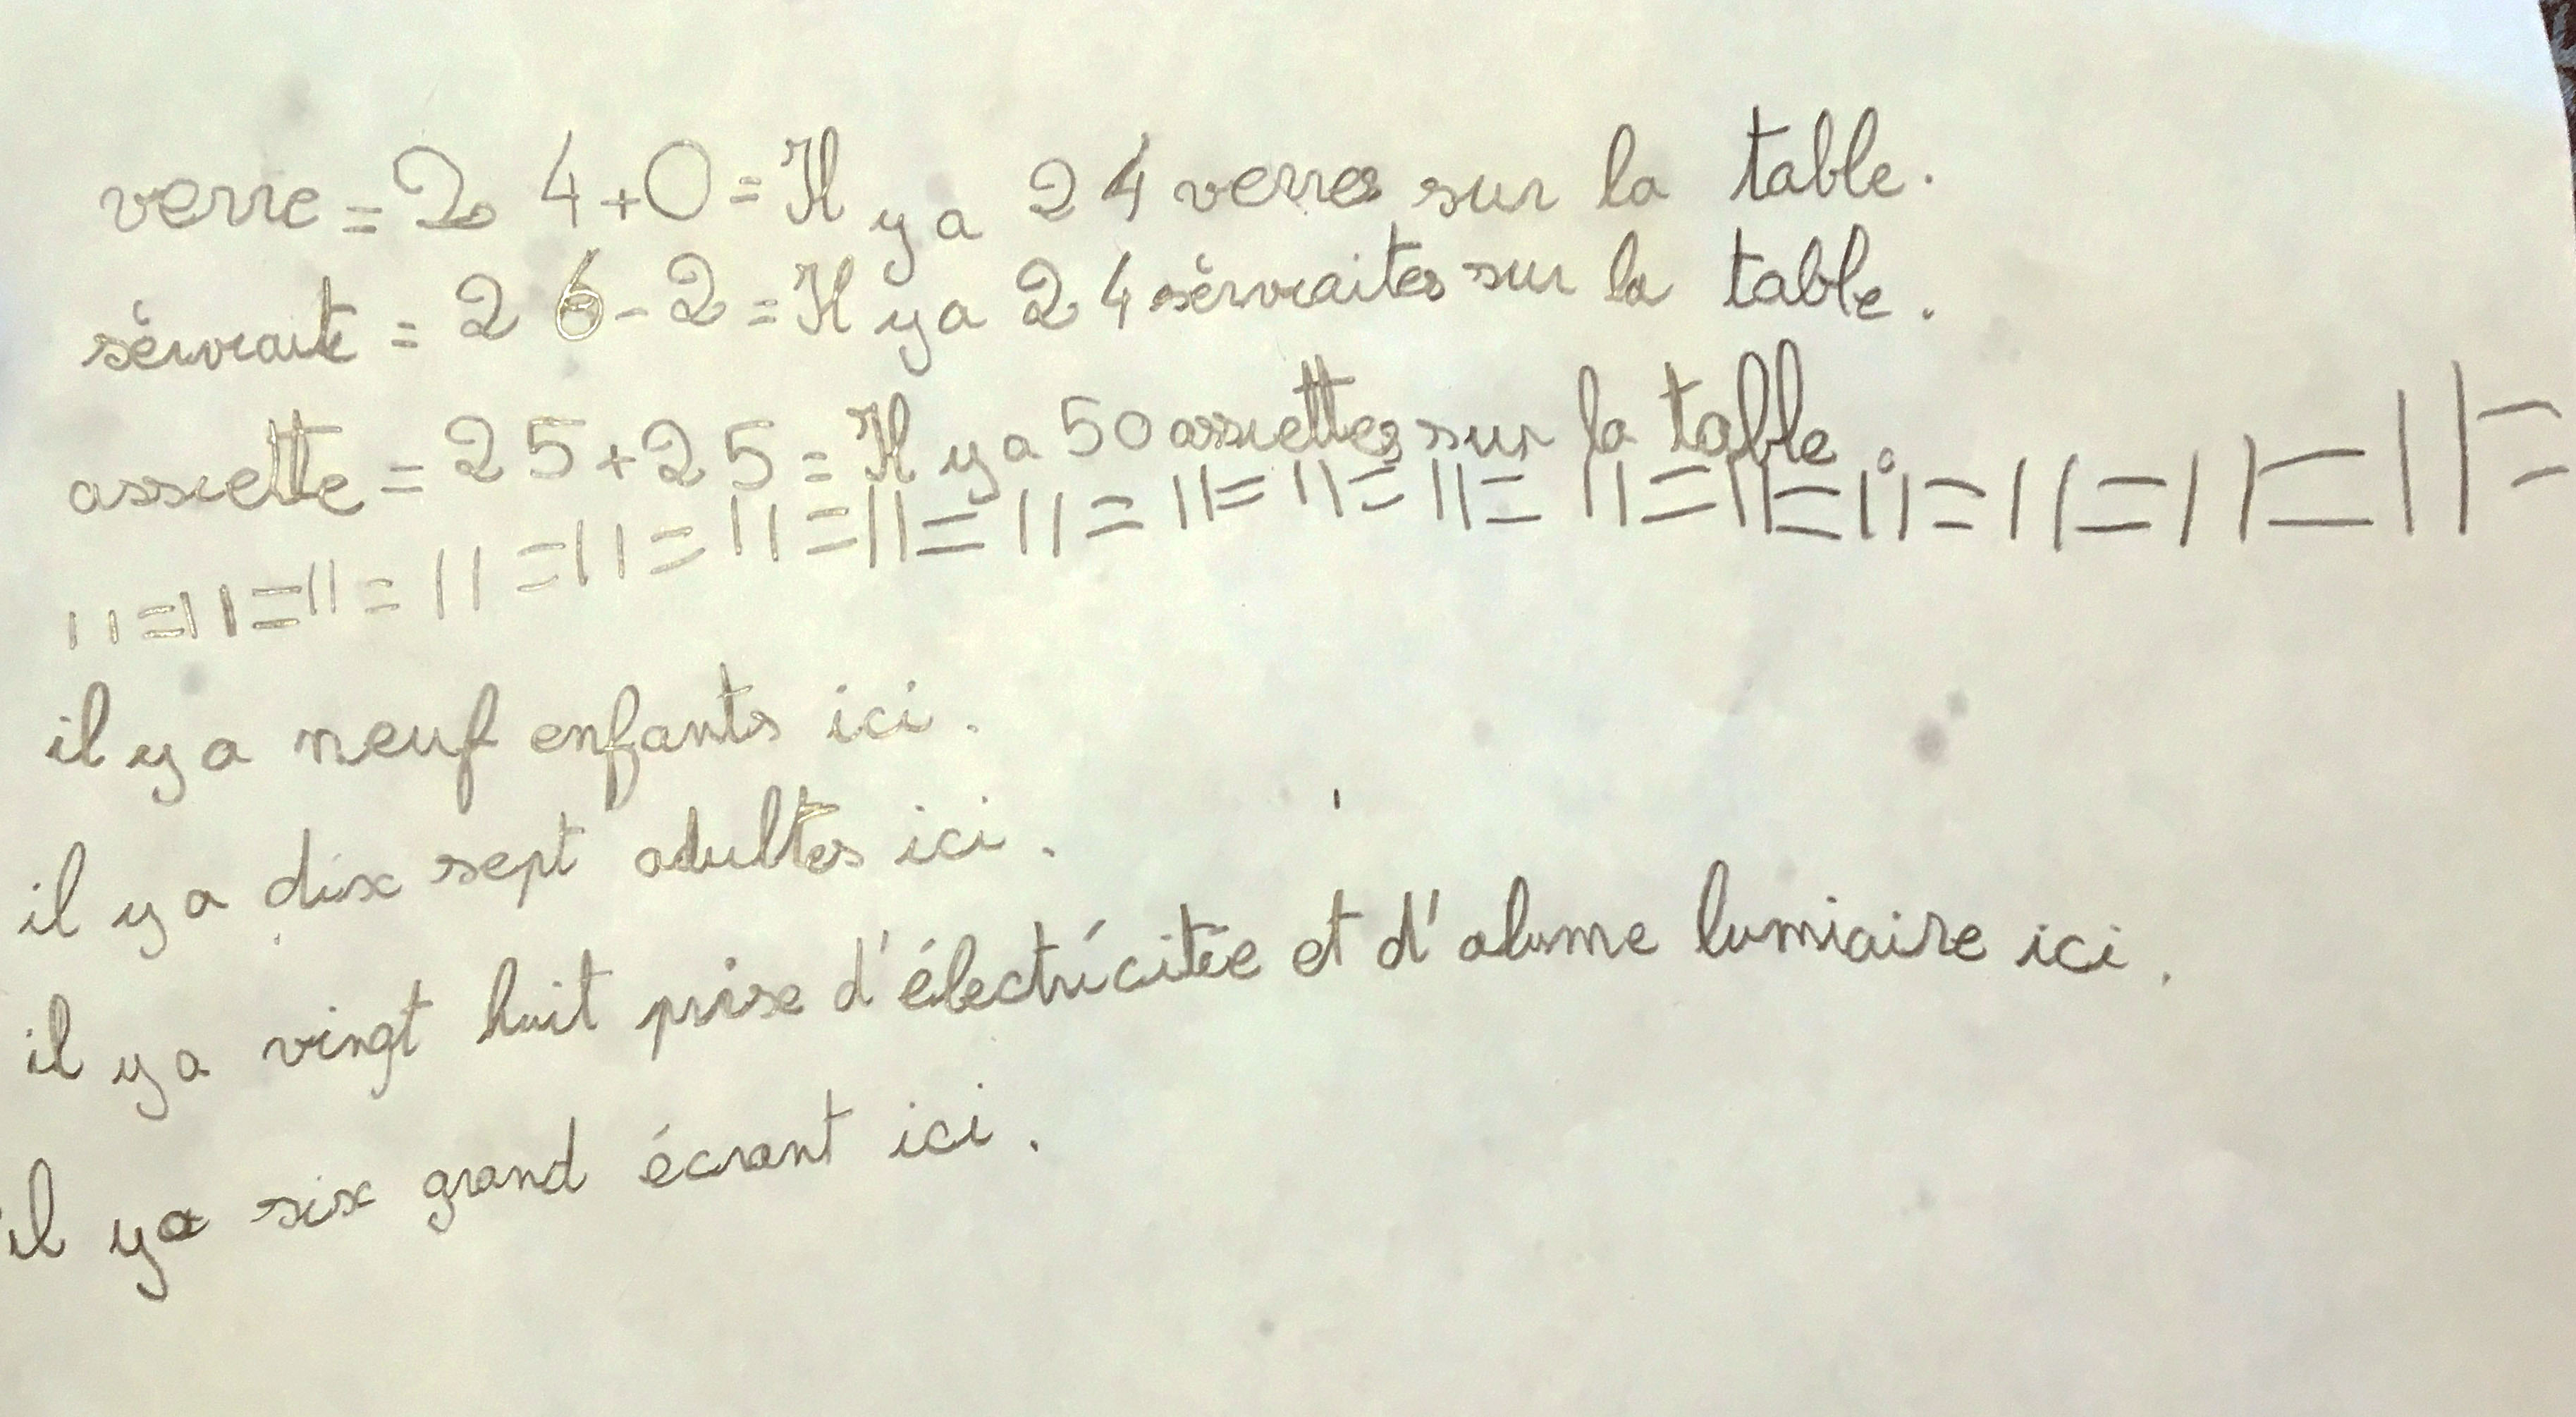 verre = 24+0 = Il y a 24 verres sur la table.
sérvraite = 26-2 = Il y a 24 sérvraites sur la table.
assiette = 25+25 = Il y a 50 assiettes sur la table.
11=11=11=11=11=11=11=11=11=11=11=11=11=11=11=11=11=
il y a neuf enfants ici.
il y a dix sept adultes ici.
il y a vingt huit prise d'électricitée et d'alume lumiaire ici.
il y a six grand écrant ici.